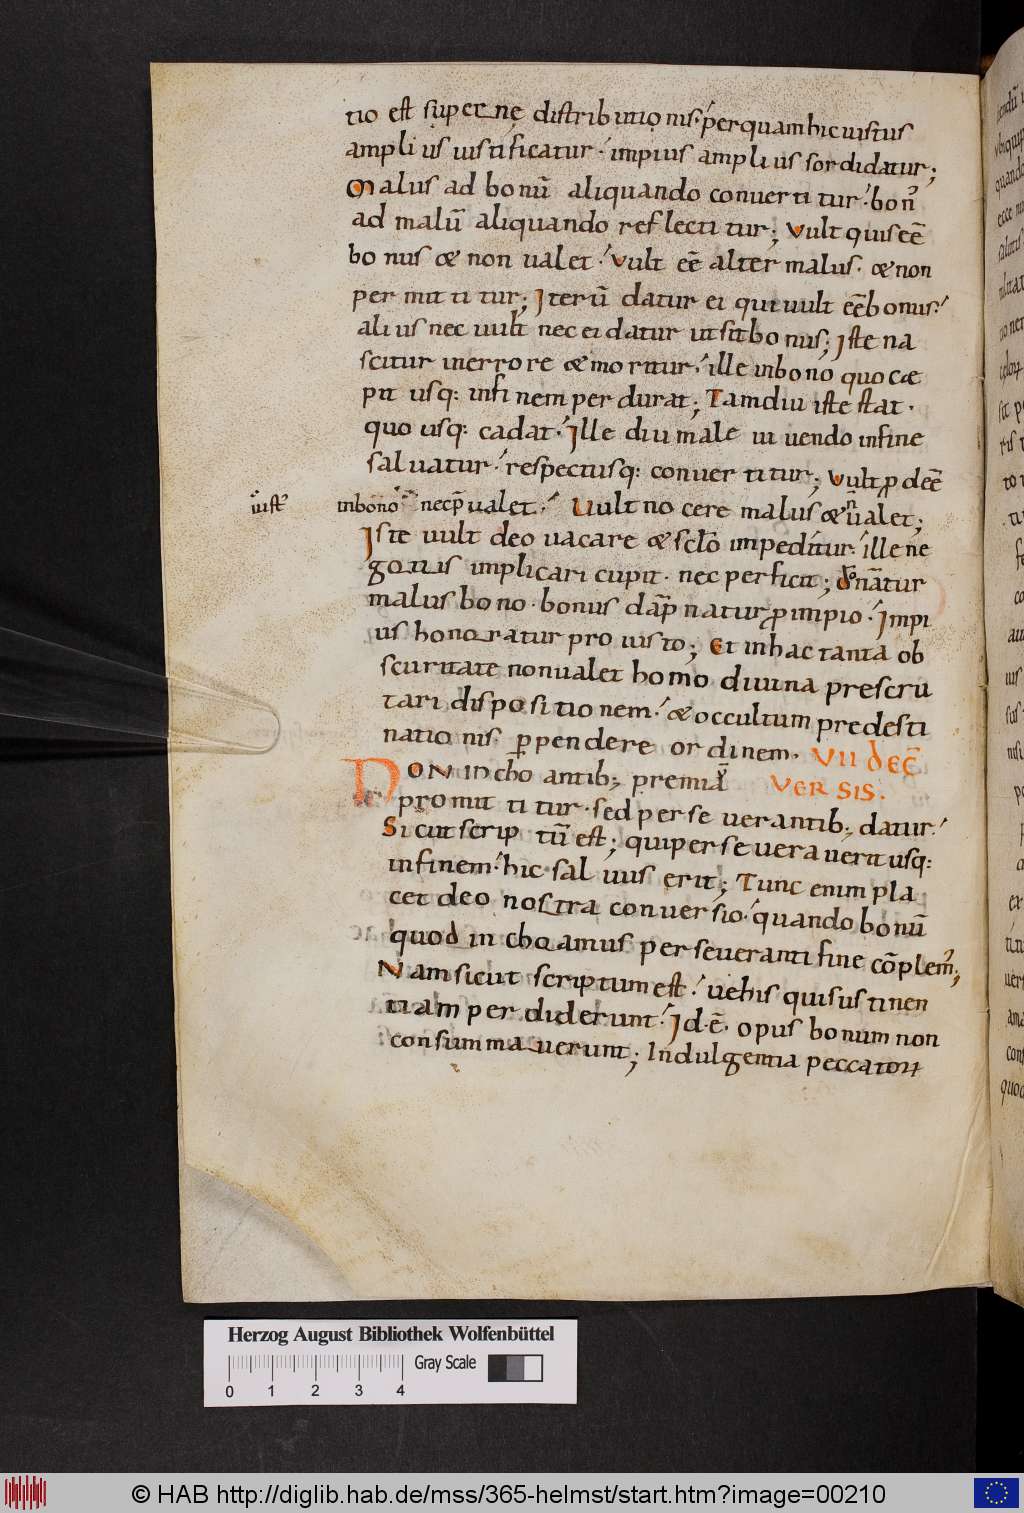 tio est supernę distributionis. per quam hic iustus
amplius iustificatur. impius amplius sordidatur;
Malus ad bonū aliquando convertitur. bonꝰ
ad malū aliquando reflectitur; Vult quis eē
bonus & non ualet. Vult eē alter malus. & non
permittitur; Iterū datur ei qui uult eē bonus.
alius nec uult nec ei datur ut sit bonus; Iste na
scitur in errore & moritur. ille in bono quo cæ
pit usq: in finem perdurat; Tamdiu iste stat.
quo usq: cadat. Ille diu male uiuendo in fine
saluatur. respectusq: convertitur; Vult ꝓdeē
iustꝰ in bono nec p̄ualet. Uult nocere malus & ualet;
Iste uult deo uacare & sclo impeditur. ille ne
gotiis implicari cupit. nec perficit; dn̄atur
malus bono. bonus dāpnatur ꝓ impio. Impi
us honoratur pro iusto; Et in hac tanta ob
scuritate non ualet homo divina prescru
tari dispositionem. & occultum predesti
nationis ꝑpendere ordinem. VII dE CŌ
NON inchoantib; premiū VERSIS.
promittitur. sed perseuerantib; datur.
Sicut scriptū est; qui perseueraverit usq:
in finem. hic saluus erit; Tunc enim pla
cet deo nostra conversio. quando bonū
quod inchoamus perseveranti fine cōplemꝰ;
Nam sicut scriptum est. uehis qui sustinen
tiam perdiderunt. Id. ē. opus bonum non
consummauerunt; Indulgentia peccatoꝝ
Herzog August Bibliothek Wolfenbüttel
Gray Scale
0 1 2 3 4
© HAB http://diglib.hab.de/mss/365-helmst/start.htm?image=00210